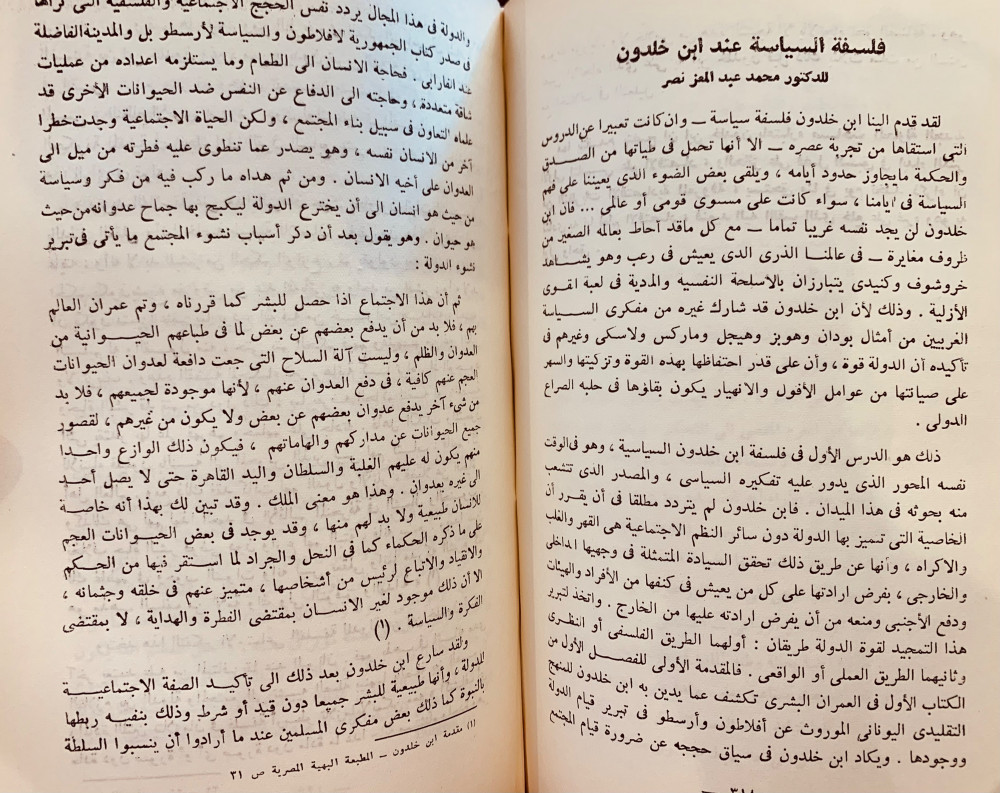 فلسفة السياسة عند ابن خلدون
للدكتور محمد عبد المعز نصر
لقد قدم الينا ابن خلدون فلسفة سياسة ــ وان كانت تعبيرا عن الدروس
التى استقاها من تجربة عصره ــ الا أنها تحمل فى طياتها من الصدق
والحكمة مايجاوز حدود أيامه ، ويلقى بعض الضوء الذى يعيننا على فهم
السياسة فى أيامنا ، سواء كانت على مسوى قومى أو عالمى ... فان ابن
خلدون لن يجد نفسه غريبا تماما ــ مع كل ماقد أحاط بعالمه الصغير من
ظروف مغايرة ــ فى عالمنا الذرى الذى يعيش فى رعب وهو يشاهد
خروشوف وكنيدى يتبارزان بالاسلحة النفسيه والمدية فى لعبة القوى
الأزلية . وذلك لأن ابن خلدون قد شارك غيره من مفكرى السياسة
الغربيين من أمثال بودان وهوبز وهيجل وماركس ولاسكى وغيرهم فى
تأكيده أن الدولة قوة ، وأن على قدر احتفاظها بهذه القوة وتزكيتها والسهر
على صيانتها من عوامل الأفول والانهيار يكون بقاؤها فى حلبه الصراع
الدولى .
ذلك هو الدرس الأول فى فلسفة ابن خلدون السياسية ، وهو فى الوقت
نفسه المحور الذى يدور عليه تفكيره السياسى ، والمصدر الذى تتشعب
منه بحوثه فى هذا الميدان . فابن خلدون لم يتردد مطلقا فى أن يقرر أن
الخاصية التى تتميز بها الدولة دون سائر النظم الاجتماعية هى القهر والغلب
والاكراه ، وأنها عن طريق ذلك تحقق السيادة المتمثلة فى وجهيها الداخلى
والخارجى ، بفرض ارادتها على كل من يعيش فى كنفها من الأفراد والهيئات
ودفع الأجنبى ومنعه من أن يفرض ارادته عليها من الخارج . واتخذ لتبرير
هذا التمجيد لقوة الدولة طريقان : أولهما الطريق الفلسفى أو النظرى
وثانيهما الطريق العملى أو الواقعى . فالمقدمة الأولى للفصل الأول من
الكتاب الأول فى العمران البشرى تكشف عما يدين به ابن خلدون للمنهج
التقليدى اليونانى الموروث عن أفلاطون وأرسطو فى تبرير قيام الدولة
ووجودها . ويكاد ابن خلدون فى سياق حججه عن ضرورة قيام المجتمع
والدولة فى هذا المجال يردد نفس الحجج الاجتماعية والفلسفية التى نراها
فى صدر كتاب الجمهورية لافلاطون والسياسة لأرسطو بل والمدينة الفاضلة
عند الفارابى . فحاجة الانسان الى الطعام وما يستلزمه اعداده من عمليات
شاقة متعددة ، وحاجته الى الدفاع عن النفس ضد الحيوانات الأخرى قد
علماه التعاون فى سبيل بناء المجتمع ، ولكن الحياة الاجتماعية وجدت خطرا
آخر من الانسان نفسه ، وهو يصدر عما تنطوى عليه فطرته من ميل الى
العدوان على أخيه الانسان . ومن ثم هداه ما ركب فيه من فكر وسياسة
من حيث هو انسان الى أن يخترع الدولة ليكبح بها جماح عدوانه من حيث
هو حيوان . وهو يقول بعد أن ذكر أسباب نشوء المجتمع ما يأتى فى تبرير
نشوء الدولة :
ثم أن هذا الاجتماع اذا حصل للبشر كما قررناه ، وتم عمران العالم
بهم ، فلا بد من أن يدفع بعضهم عن بعض لما فى طباعهم الحيوانية من
العدوان والظلم ، وليست آلة السلاح التى جعت دافعة لعدوان الحيوانات
العجم عنهم كافية ، فى دفع العدوان عنهم ، لأنها موجودة لجميعهم ، فلا بد
من شىء آخر يدفع عدوان بعضهم عن بعض ولا يكون من غيرهم ، لقصور
جميع الحيوانات عن مداركهم والهاماتهم ، فيكون ذلك الوازع واحدا
منهم يكون له عليهم الغلبة والسلطان واليد القاهرة حتى لا يصل أحد
الى غيره بعدوان . وهذا هو معنى الملك . وقد تبين لك بهذا أنه خاصة
للانسان طبيعية ولا بد لهم منها ، وقد يوجد فى بعض الحيوانات العجم
على ما ذكره الحكماء كما فى النحل والجراد لما استقر فيها من الحكم
والانقياد والاتباع لرئيس من أشخاصها ، متميز عنهم فى خلقه وجثمانه ،
الا أن ذلك موجود لغير الانسان بمقتضى الفطرة والهداية ، لا بمقتضى
الفكرة والسياسة . (١)
ولقد سارع ابن خلدون بعد ذلك الى تأكيد الصفة الاجتماعية
للدولة ، وأنها طبيعية للبشر جميعا دون قيد أو شرط وذلك بنفيه ربطها
بالنبوة كما ذلك بعض مفكرى المسلمين عند ما أرادوا أن ينسبوا السلطة
(١) مقدمة ابن خلدون ــ المطبعة البهية المصرية ص ٣١